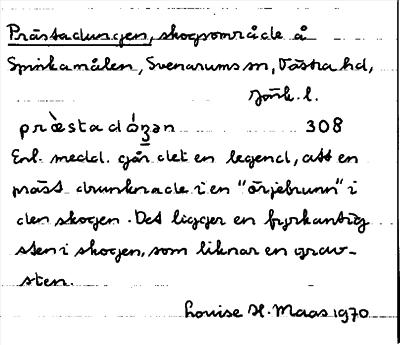 Prästadungen, skogsområde å
Spinkamålen, Svenarums sn, Västra hd,
Jönk. l.
præ̀stadóŋən 308
Enl. medd. går det en legend, att en
präst drunknade i en "örjebrunn" i
den skogen. Det ligger en fyrkantig
sten i skogen, som liknar en grav-
sten.
Louise H. Maas 1970